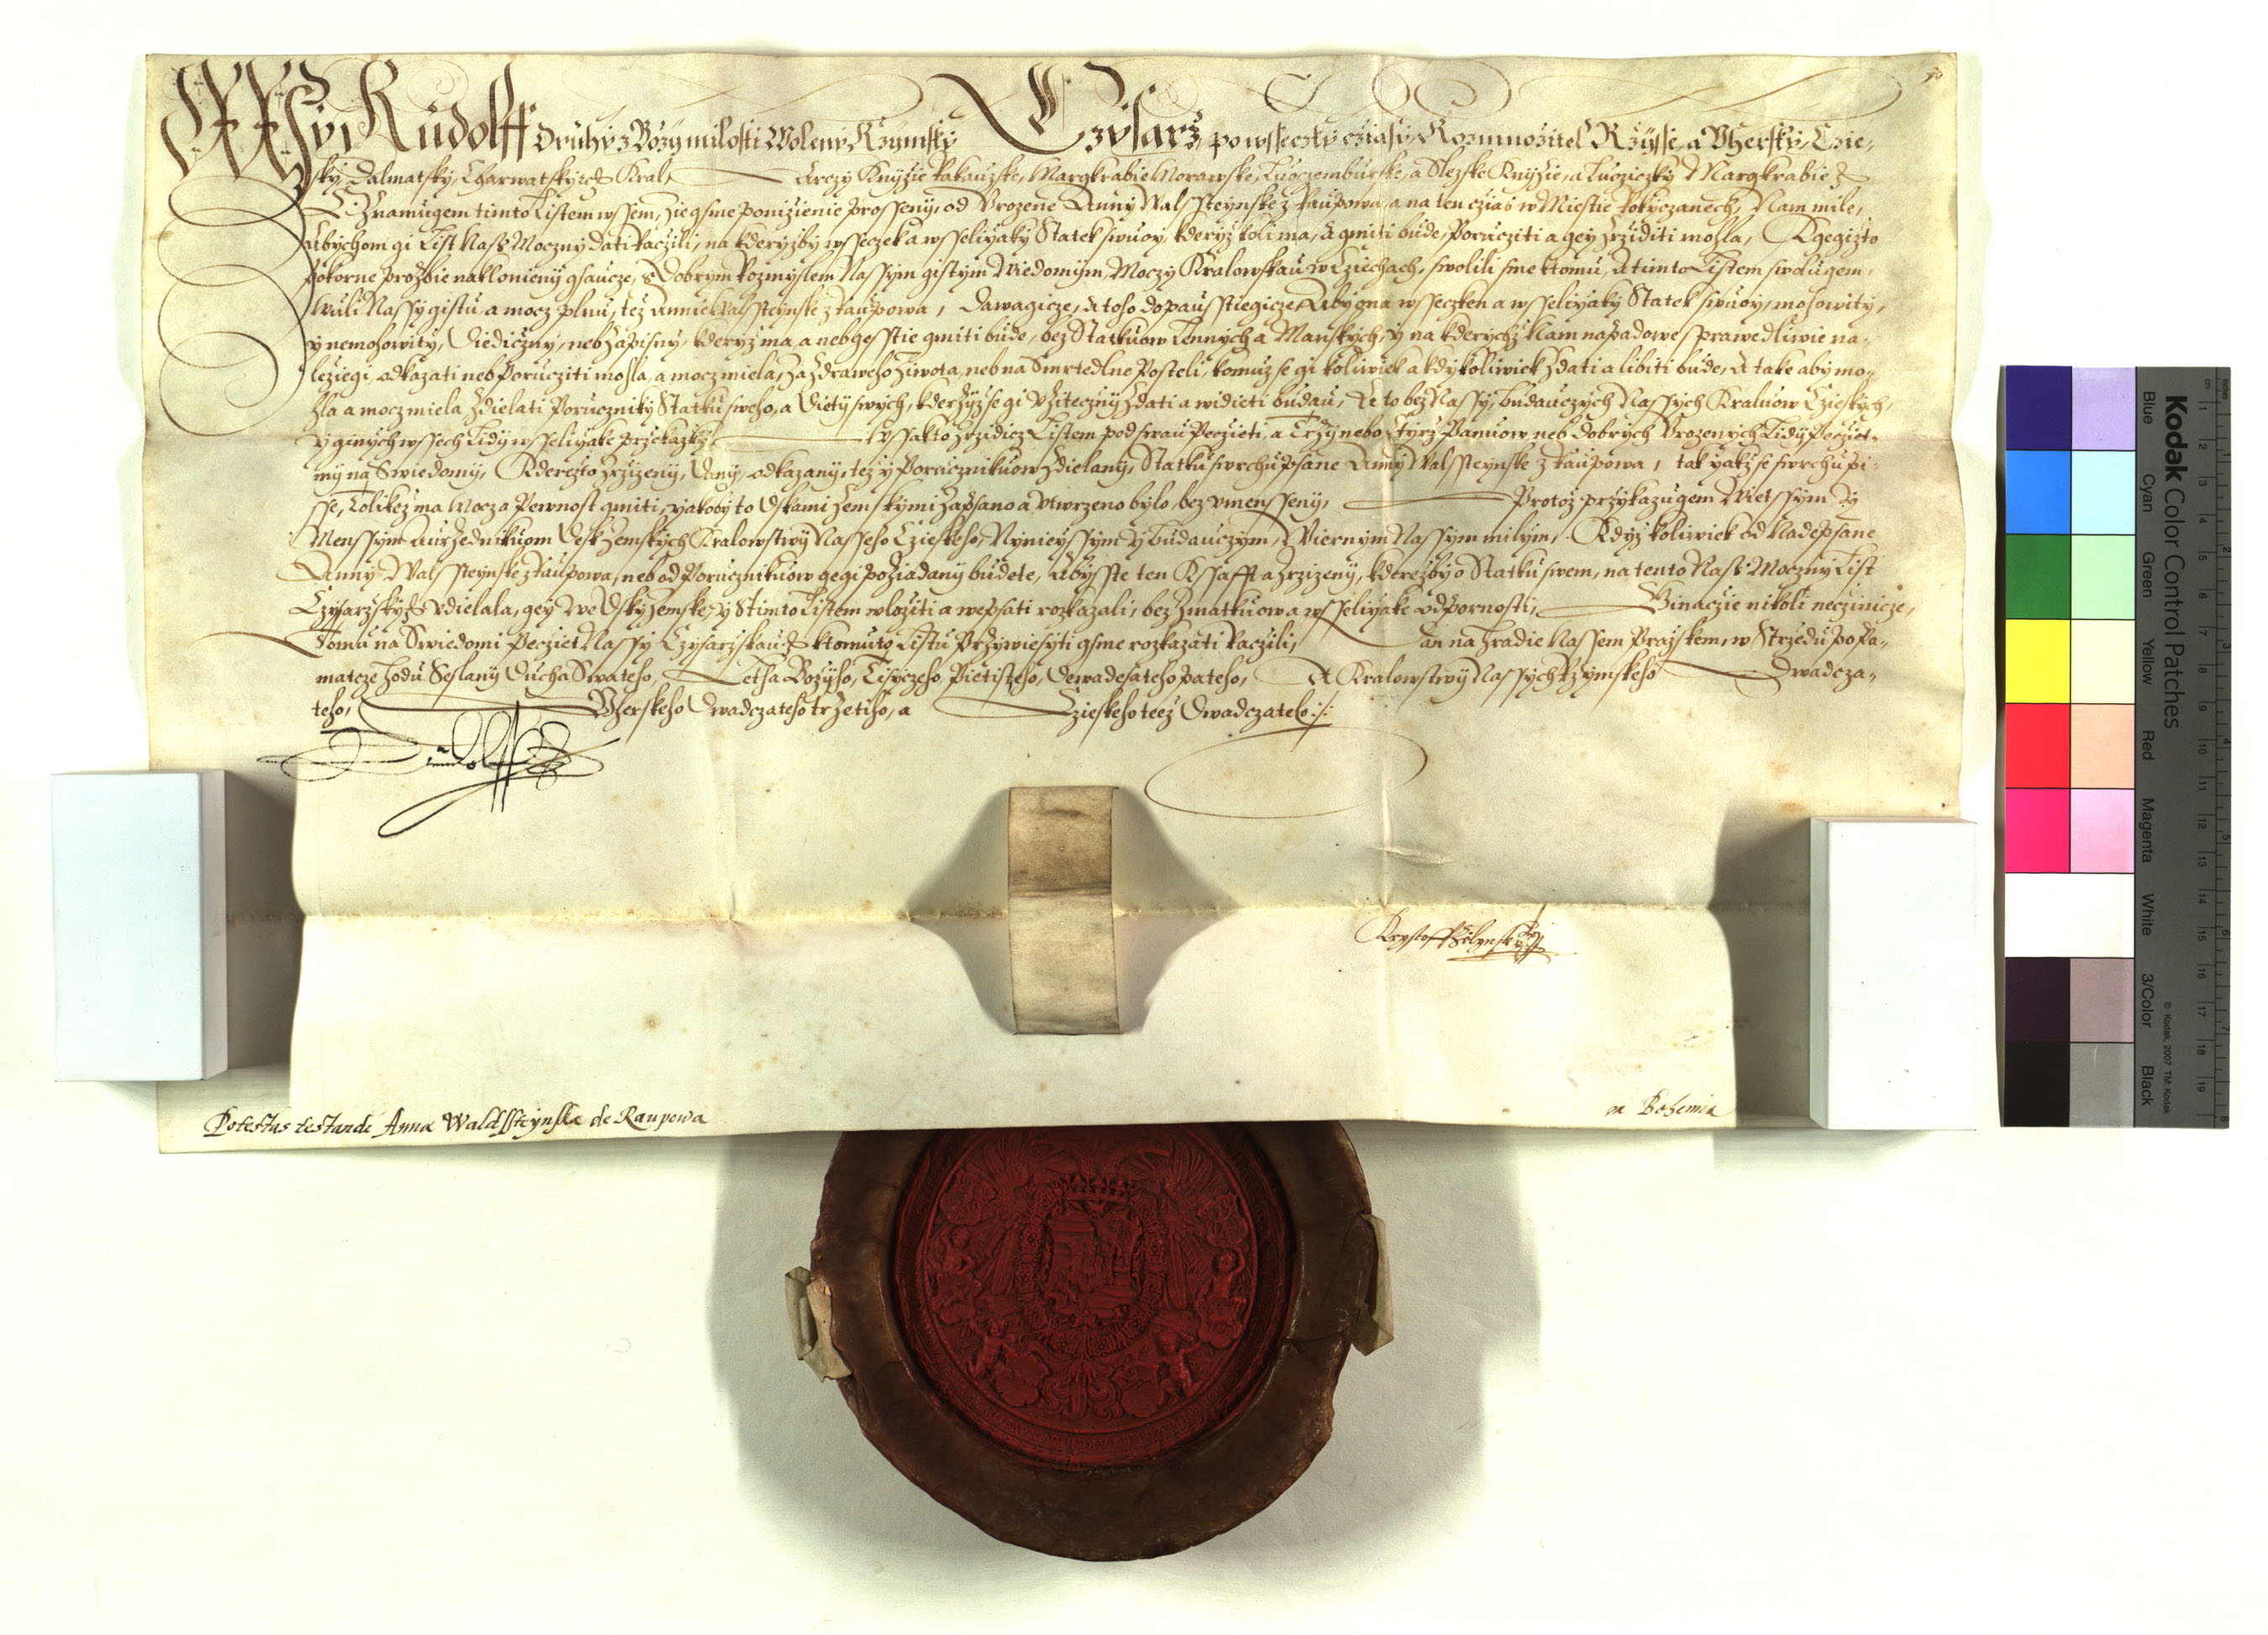 My Rudolff Druhy z Bozy milosti Woleny Rzymsky Czysarz, po wsseczky cziasy, Rozmnozitel Rzysse, a Vhersky, Czie-
sky, Dalmatsky, Charwatsky &c Kral, Arczy Knyzie Rakauzske, Margkrabie Morawske, Luczemburske, a Slezske Knyzie, a Luziczky Margkrabie &c
Oznamugem timto Listem wssem, zie gsme ponizienie prosseny, od Vrozene Anny Walssteynske z Raupowa, a na ten czias w Miestie Rokyczanech, Nam mile,
Abychom gi List Nass Moczny dati raczili, na kderyzby wsseczek a wsseliyaky Statek swuoy, kderyz koli ma, a gmiti bude, Porucziti a gey zrziditi mohla, Kgegizto
pokorne prozbie naklonieny gsaucze, s dobrym Rozmyslem Nassym gistym Wiedomym, Moczy Kralowskau w Cziechach, swolili sme ktomu, a timto Listem swolugem,
Wuli Nassy gistu, a mocz plnu, tez Annie Walssteynske z Raupowa, dawagicze, a toho dopausstiegicze, Aby ona wsseczken a wsseliyaky Statek swuoy, mohowity,
y nemohowity, Diediczny, neb zapisny, kderyz ma, a neb gesstie gmiti bude, bez Statkuow Lennych a Manskych, y na kderychz Nam napadowe sprawedliwie na-
leziegi, odkazati neb Porucziti mohla, a mocz miela, za zdraweho ziwota, neb na Smrtedlne Posteli, komuz se gi koliwiek a kdyzkoliwiek zdati a libiti bude, A take aby mo-
hla a mocz miela zdielati Poruczniky Statku sweho, a Dietij swych, kderzyz se gi vziteczny zdati a widieti budau, A to bez Nassy, budauczych Nassych Kraluow Czieskych,
y ginych wssech Lidy wsseliyake przekazky, Wssak to zrzidicz Listem pod swau Peczieti, a Trzy nebo Cztyrz Panuow, neb dobrych Vrozenych Lidy Pecziet-
my na Swiedomy, Kderezto zrzizeny, Dany, odkazany, tez y Porucznikuow zdielany, Statku swrchupsane Anny Walssteynske z Raupowa, tak yakz se swrchu pi-
sse, Tolikez ma Mocz a Pewnost gmiti, yakoby to Dskami Zemskymi zapsano a vtwrzeno bylo, bez vmensseny, Protoz przykazugem Wietssym y
Menssym Aurzednikuom Desk Zemskych Kralowstwy Nasseho Czieskeho, Nynieyssym y budauczym, Wiernym Nassym milym, Kdyz koliwiek od Nadepsane
Anny Walssteynske z Raupowa, neb od Porucznikuow gegi poziadany budete, Abysste ten Kssafft a zrzizeny, kderezby o Statku swem, na tento Nass Moczny List
Czysarzsky &c vdielala, gey We Dsky Zemske, y s timto Listem wloziti a wepsati rozkazali, bez zmatkuow a wsseliyake odpornosti, Ginaczie nikoli neczinicze,
Tomu na Swiedomi Pecziet Nassy Czysarzskau &c ktomuto Listu Przywiesyti gsme rozkazati raczili, Dan na Hradie Nassem Prazskem, w Strzedu po Pa-
matcze Hodu Seslany Ducha Swateho, Letha Bozyho, Tisyczeho Pietisteho, Dewadesateho Pateho, A Kralowstwy Nassych Rzymskeho Dwadcza-
teho, Vherskeho Dwadczateho trzetiho, a Czieskeho teez Dwadczateho :/:
Rudolff
Krystoff Zelynsky
Potestas testandi Anna Waldssteynska de Raupowa
in Bohemia
Kodak Color Control Patches
© Kodak, 2007 TM: Kodak
Blue Cyan Green Yellow Red Magenta White 3/Color Black
cm 1 2 3 4 5 6 7 8 9 10 11 12 13 14 15 16 17 18 19
inches 1 2 3 4 5 6 7 8